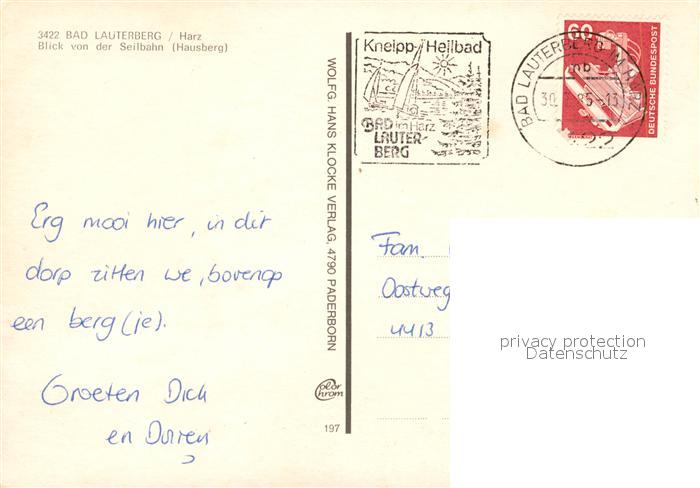 3422 BAD LAUTERBERG / Harz
Blick von der Seilbahn (Hausberg)
Erg mooi hier, in dit
dorp zitten we, bovenop
een berg(je).
Groeten Dick
en
WOLFG. HANS KLOCKE VERLAG, 4790 PADERBORN
Color
Chrom
197
Kneipp-Heilbad
BAD im Harz
LAUTER-
BERG
BAD LAUTERBERG IM HARZ
60
DEUTSCHE BUNDESPOST
Fam.
Oostweg
4413
privacy protection
Datenschutz